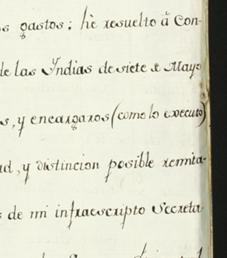 s gastos; hè resuelto à Con-
de las Indias de siete de Mayo
s, y encargaros (como lo executo)
ad, y distincion posible remita-
s de mi infraescripto Secreta-